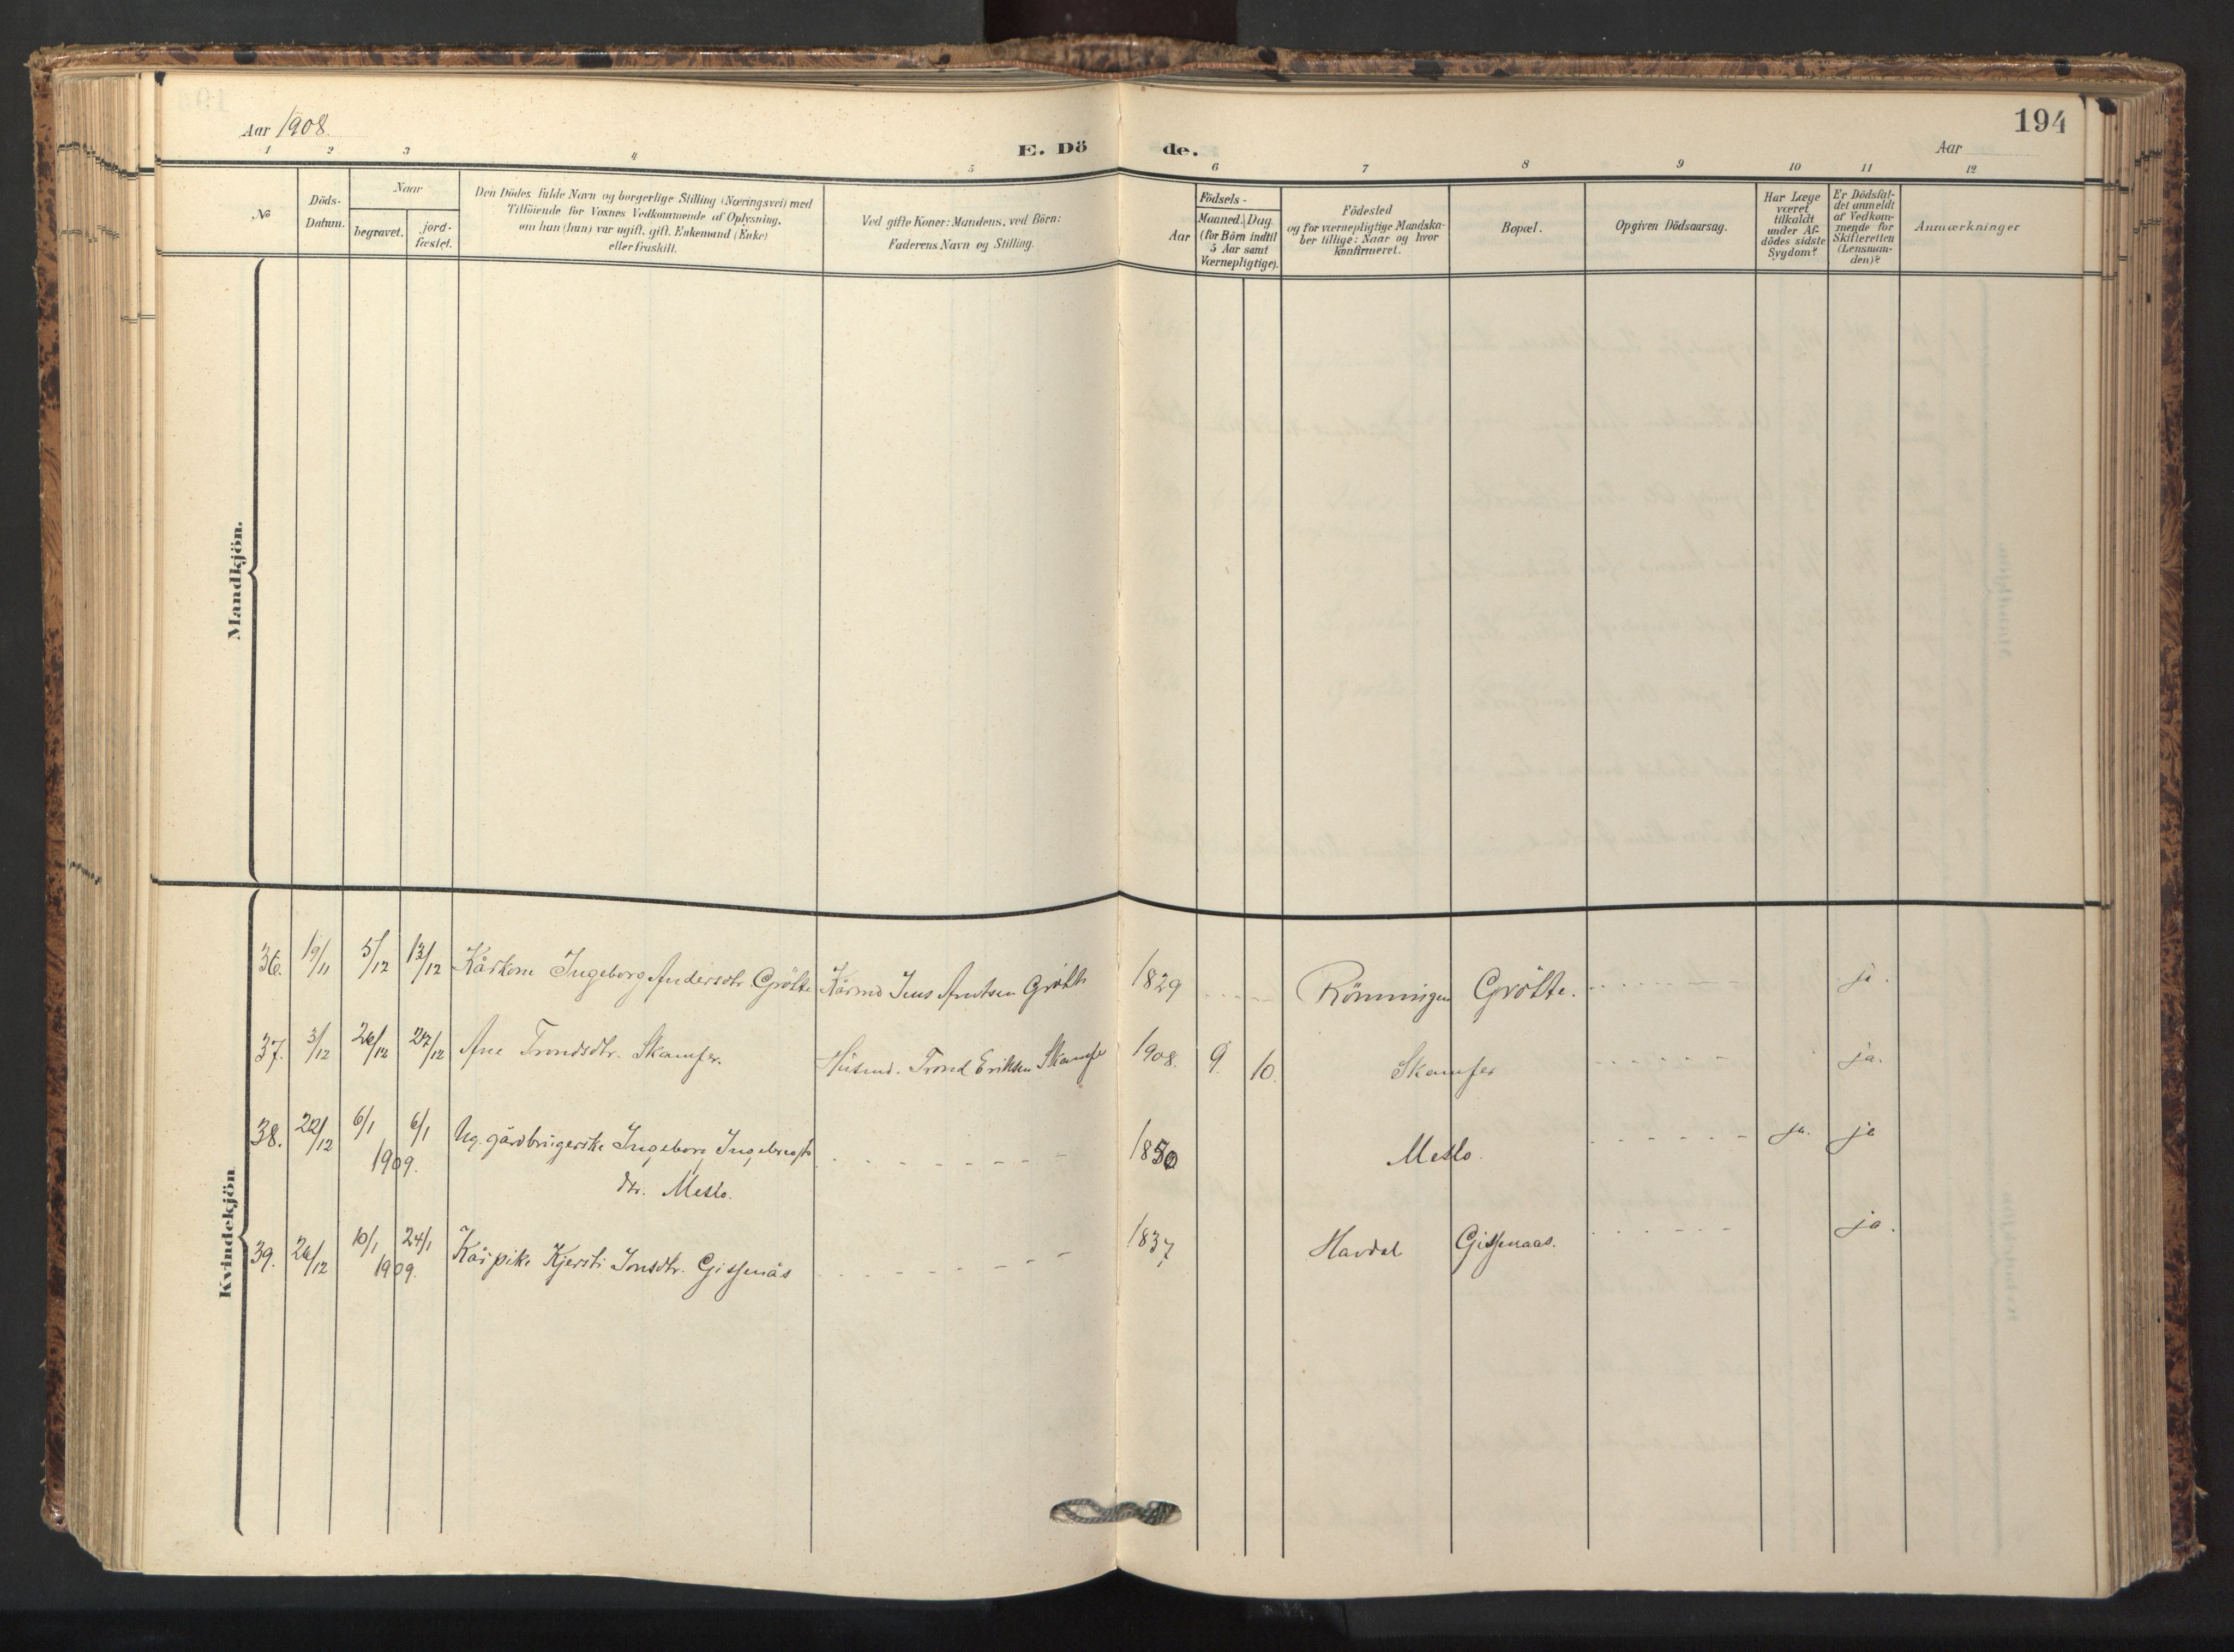 194
Aar 1908
E. Dö de.
Aar
1 2 3 4 5 6 7 8 9 10 11 12
№
Döds-
Datum.
Naar
begravet.
jord-
fæstet.
Den Dödes fulde Navn og borgerlige Stilling (Næringsvei) med
Tilföiende for Voxnes Vedkommende af Oplysning,
om han (hun) var ugift, gift, Enkemand (Enke)
eller fraskilt.
Ved gifte Koner: Mandens, ved Börn:
Faderens Navn og Stilling.
Aar
Födsels-
Maaned. Dag
(for Börn indtil
5 Aar samt
Værnepligtige).
Födested
og for værnepligtige Mandska-
ber tillige: Naar og hvor
Konfirmeret.
Bopæl.
Opgiven Dödsaarsag.
Har Læge
været
tilkaldt
under Af-
dödes sidste
Sygdom?
Er Dödsfal-
det anmeldt
af Vedkom-
mende for
Skifteretten
(Lensman-
den)?
Anmærkninger
Mandkjön.
Kvindekjön
36. 19/11 5/12 13/12 Kårkone Ingeborg Andersdtr Grötte Kårmd Jens Arntsen Grötte 1829 Rönningen Grötte. ja.
37. 3/12 26/12 27/12 Ane Trondsdtr. Skamfer. Husmd. Trond Eriksen Skamfer 1908. 9. 10. Skamfer ja.
38. 22/12 6/1 6/1 Ug. gårdbrugerske Ingeborg Ingebrigts 1850 Meslo. ja. ja
1909. dtr. Meslo.
39. 26/12 10/1 24/1 Kårpike Kjersti Jonsdtr. Gisnås 1837 Havdal Gisnaas. ja.
1909.